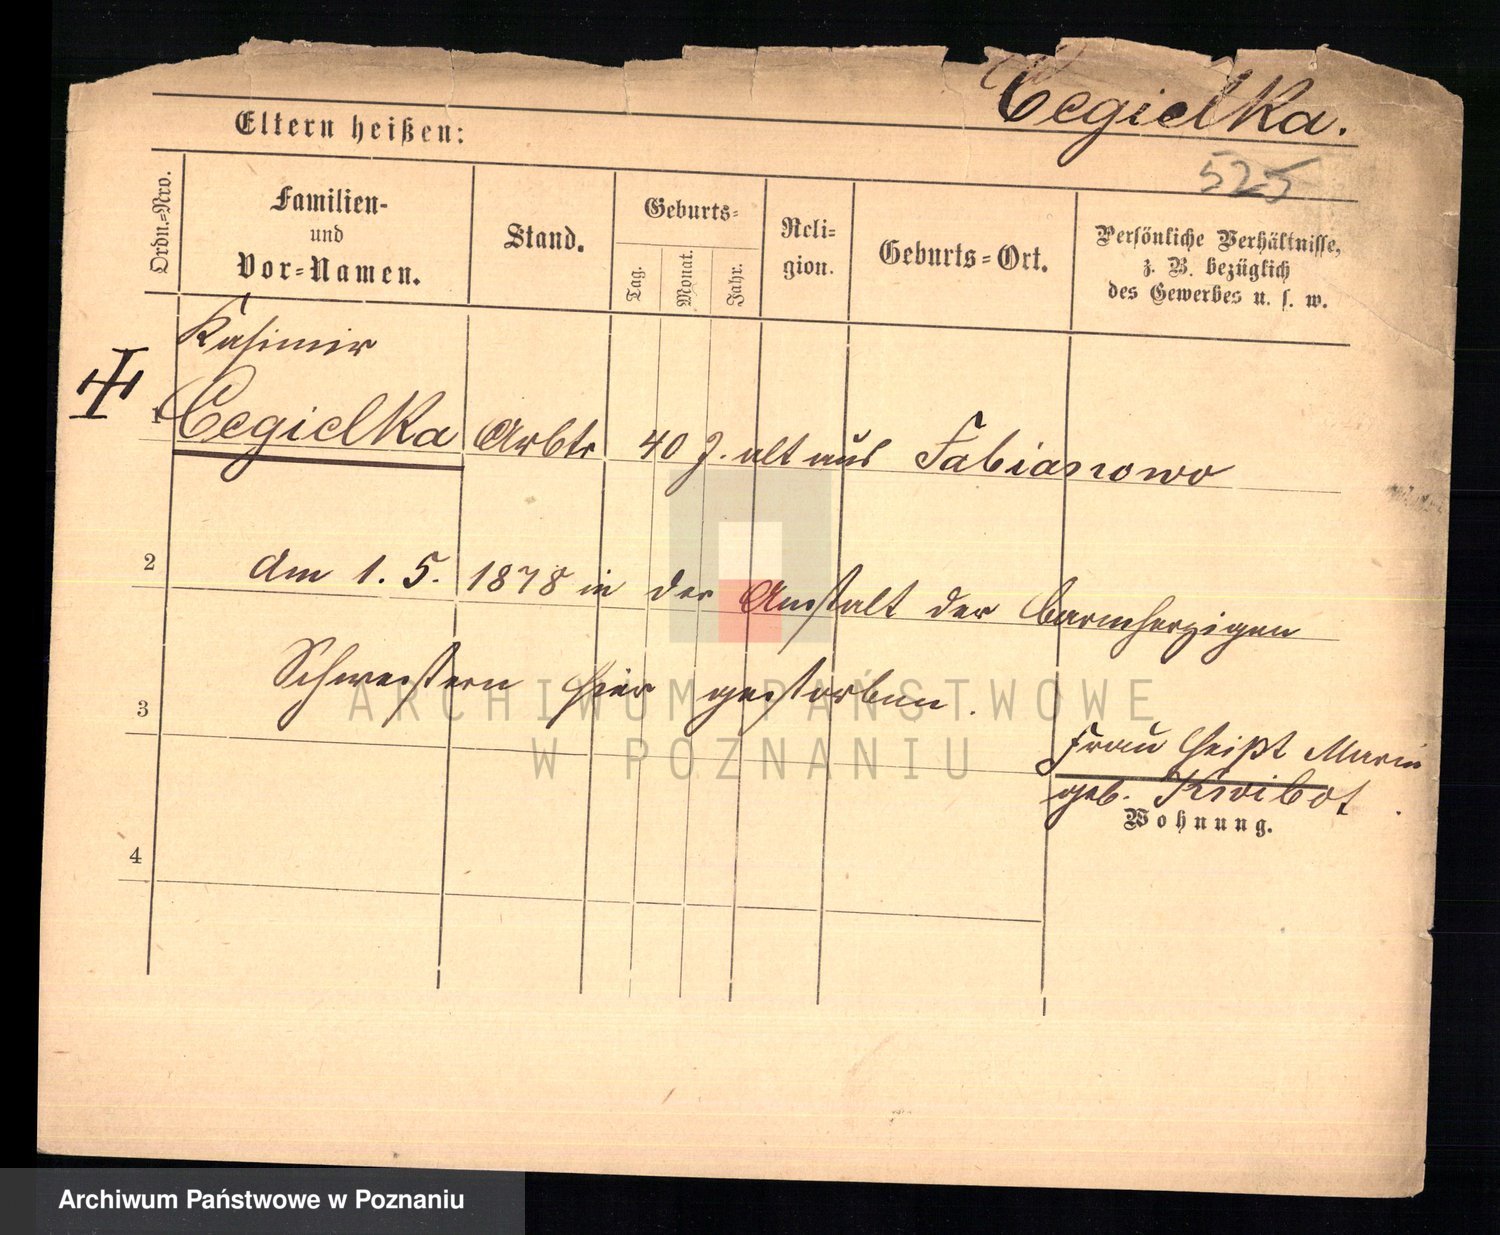 Cegielka.
Eltern heißen:
525
Ordn.=Nro.
Familien-
und
Vor=Namen.
Stand.
Geburts=
Tag.
Monat.
Jahr.
Reli=
gion.
Geburts=Ort.
Persönliche Verhältnisse,
z. B. bezüglich
des Gewerbes u. s. w.
Kasimir
1 Cegielka Arbtr 40 J. alt aus Fabianowo
2 am 1. 5. 1878 in der Anstalt der barmherzigen
Schwestern hier gestorben.
3
Frau heißt Marie
geb. Kwibot
Wohnung.
4
ARCHIWUM PAŃSTWOWE
W POZNANIU
Archiwum Państwowe w Poznaniu